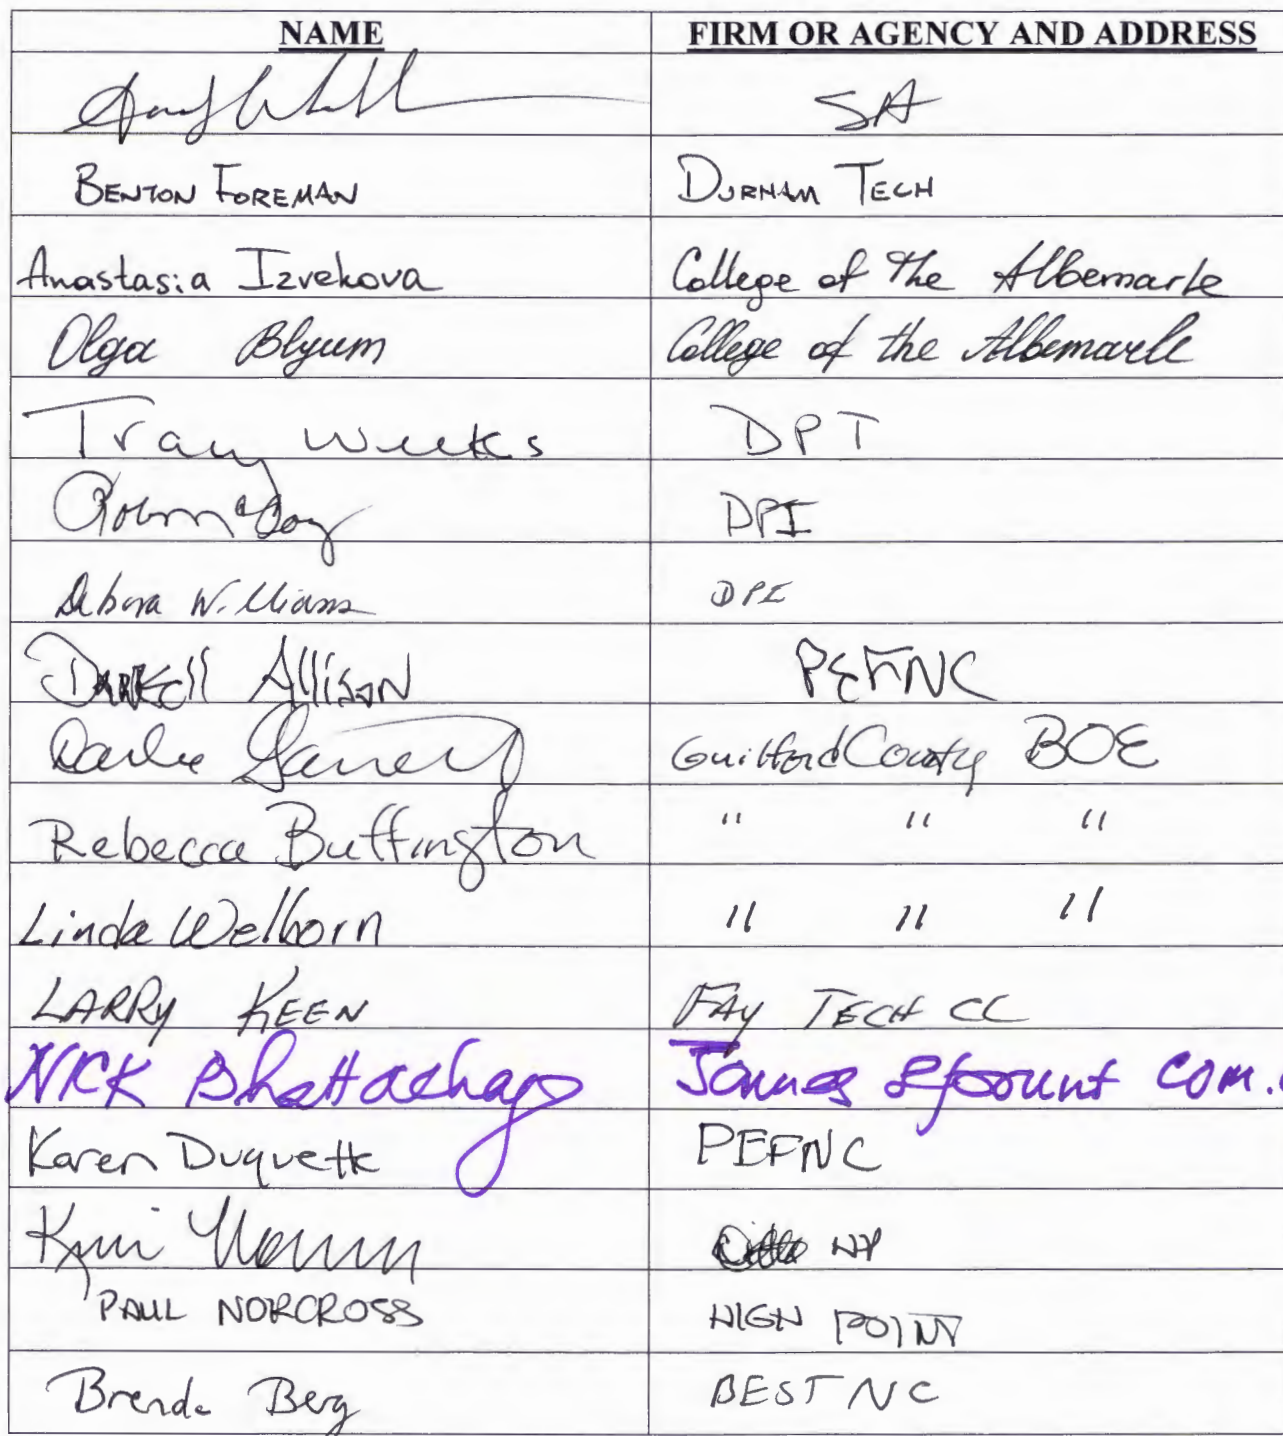 NAME FIRM OR AGENCY AND ADDRESS
SA
BENTON FOREMAN DURHAM TECH
Anastasia Izvekova College of The Albemarle
Olga Blyum College of the Albemarle
Tracy Weeks DPI
DPI
Debora Williams DPI
DARRELL Allison PEFNC
Darlene Garrett Guilford County BOE
Rebecca Buffington " " "
Linda Welborn " " "
LARRY KEEN FAY TECH CC
NICK Bhattacharya James Com.
Karen Duquette PEFNC
HP
PAUL NORCROSS HIGH POINT
Brenda Berg BEST NC